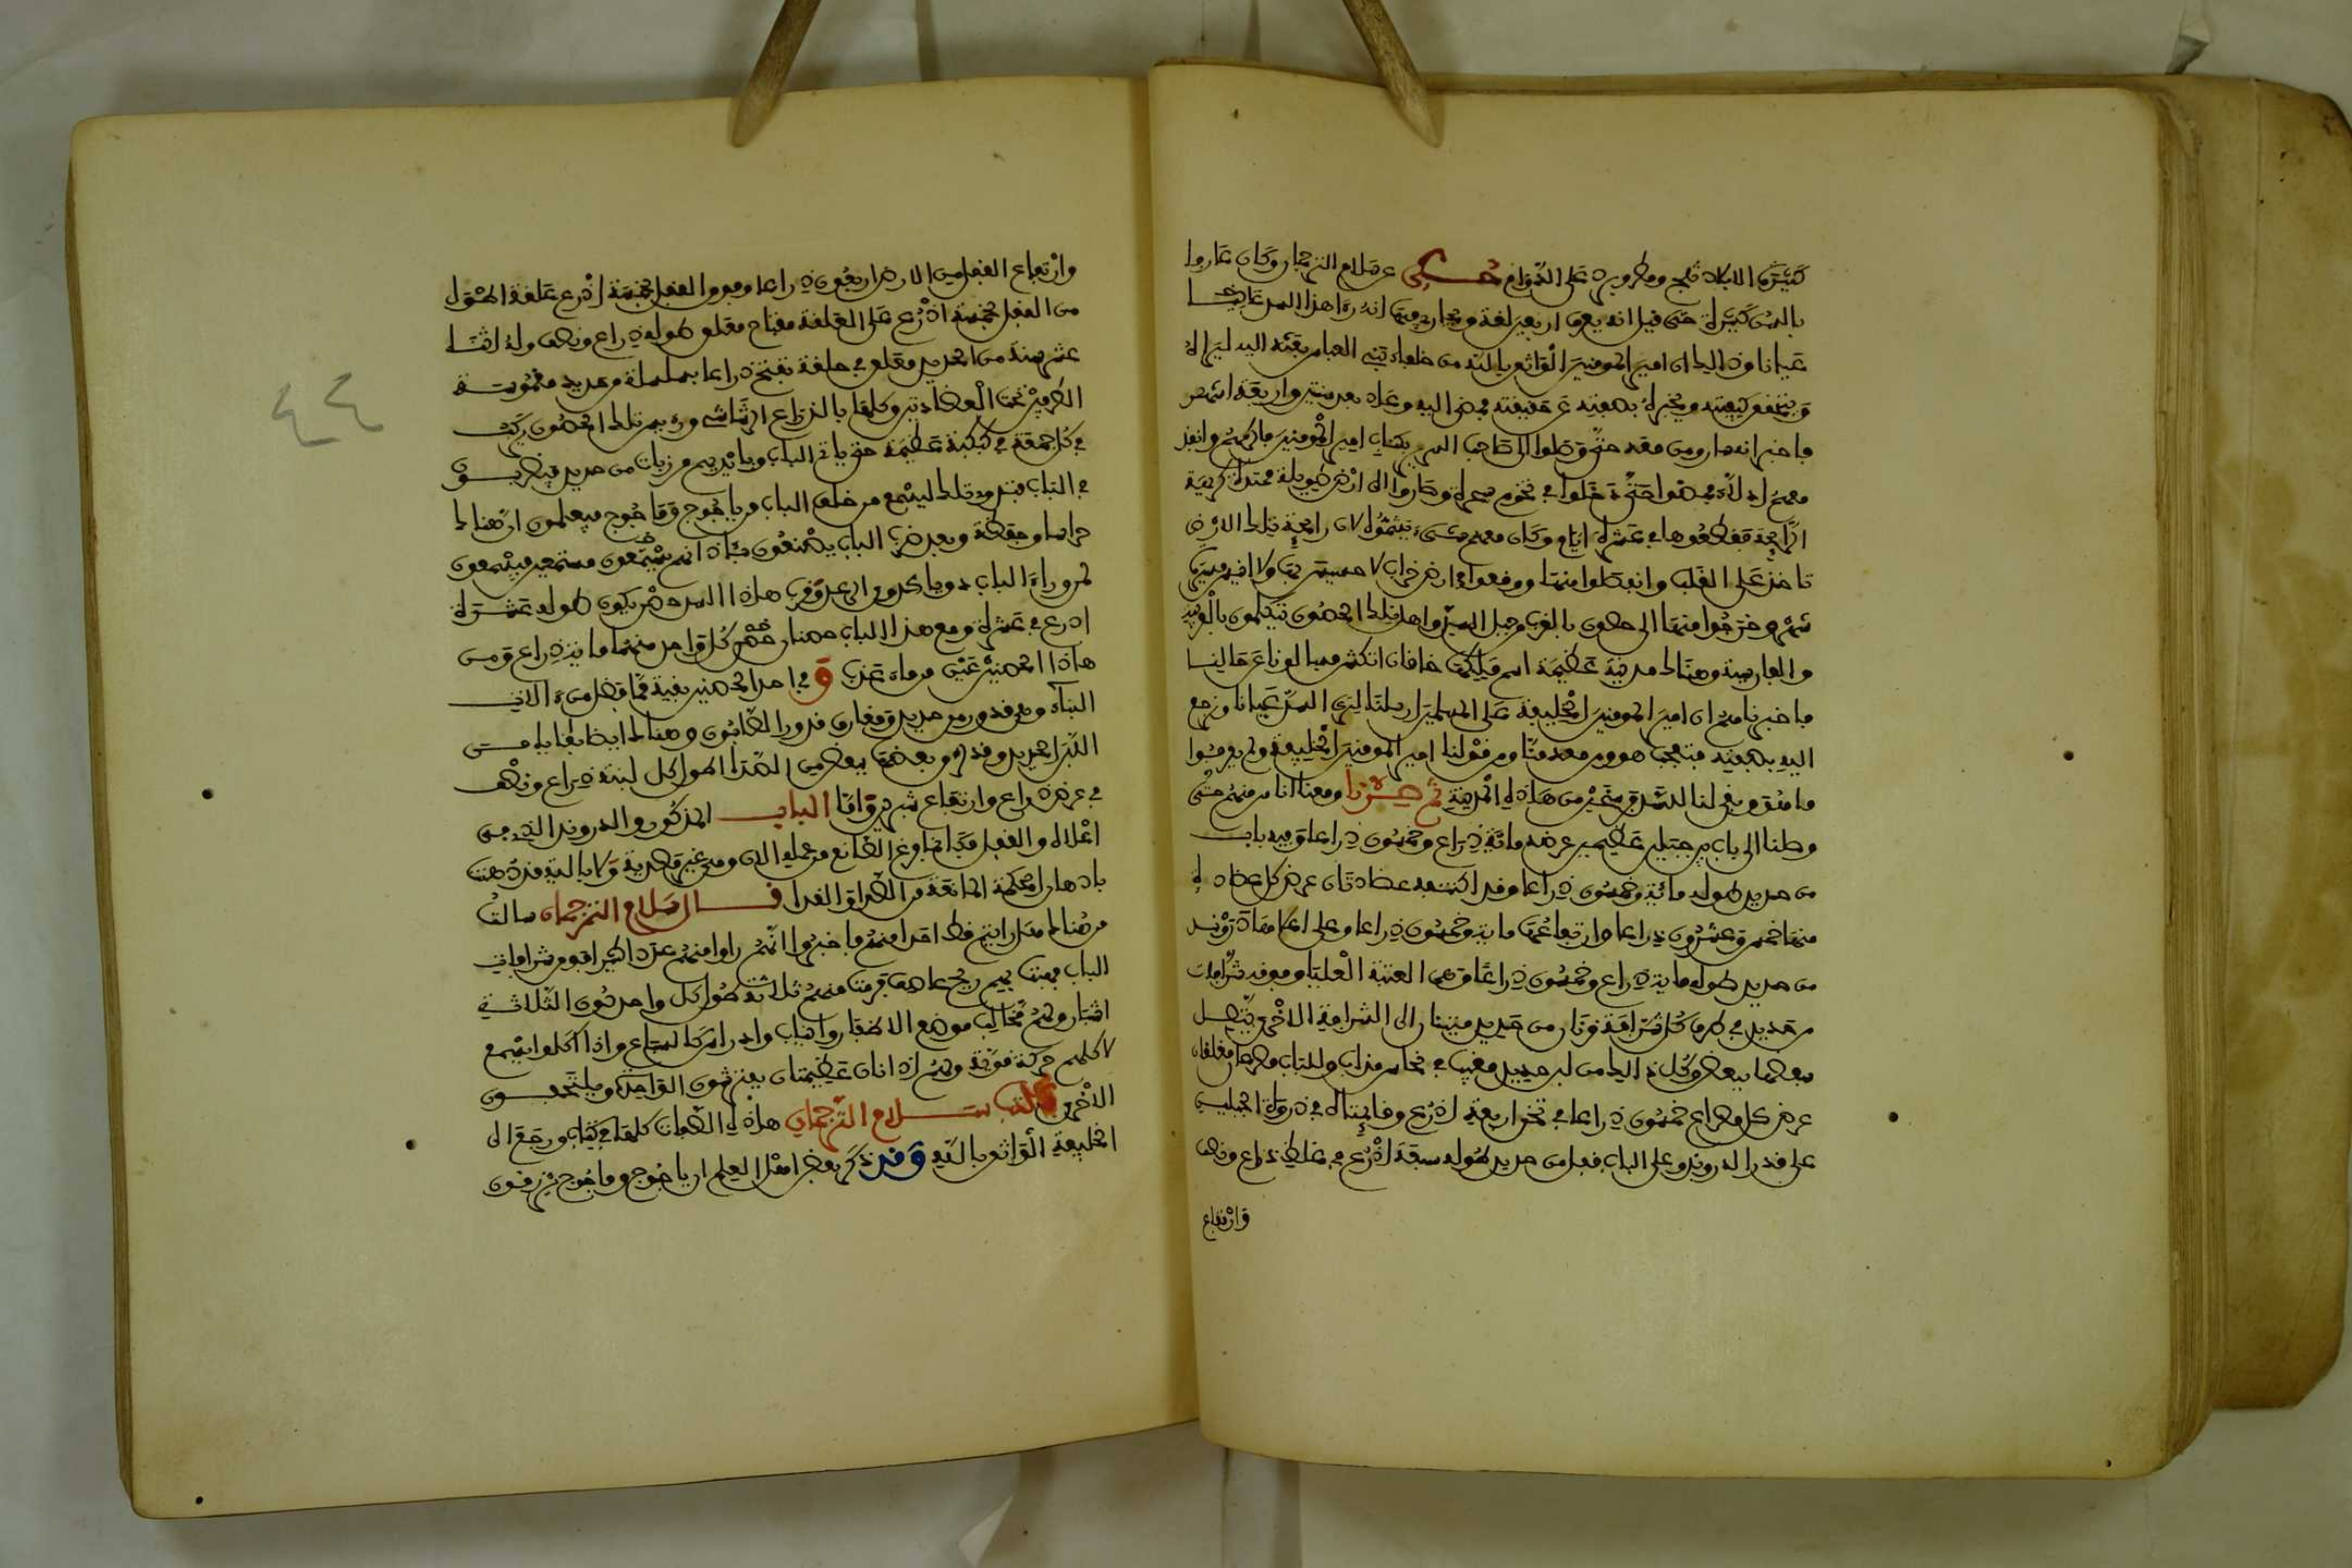 كثيرة الانداد ثلج ومطر وبرد على الدوام حكي عن سلام الترجمان وكان عارفا
بالسن كثيرة حتى قيل انه يعرف اربعين لغة ويجاريها انه رءا هذا السد
عيانا وذالك ان امير المومنين الواثق بالله من خلفاء بني العباس بعثه اليه ليراه
ويتحقق كيفيته ويخبره بصفته عن حقيقته فمضى اليه وعاد بعد سنتين واربعة اشهر
فاخبر انه سار ومن معه حتى وصلوا الى صاحب السرير بكتاب امير المومنين فاكرمهم وانفذ
معهم ادلاء فمضوا حتى دخلوا في تخوم وصاروا الى ارض طويلة ممتدة كريهة
الرايحة فقطعوها في عشرة ايام وكان معهم شيء يشمونه لان رايحة تلك الارض
تاخذ على القلب وانفصلوا منها ووقعوا في ارض خراب لا حسيس بها ولا انيس مسيرة
شهر وخرجوا منها الى حصون بالقرب من جبل السد واهل تلك الحصون يتكلمون بالعربية
والفارسية وهناك مدينة عظيمة اسم ملكها خاقان اتكش فسالونا عن حالنا
فاخبرناهم ان امير المومنين الخليفة على المسلمين ارسلنا لنرى السد عيانا ونرجع
اليه بصفته فتعجب هو ومن معه منا ومن قولنا امير المومنين الخليفة ولم يعرفوا
ما هو وبقي لنا السد فرسخين من هاذه المدينة ثم سرنا ومعنا اناس منهم حتى
وصلنا الى باب بين جبلين عظيمين عرضه مائة ذراع وخمسون ذراعا وفيه باب
من حديد طوله مائة وخمسون ذراعا وقد اكتنفه عضادتان عرض كل عضادة
منها خمس وعشرون ذراعا وارتفاعها ماية وخمسون ذراعا وعلى اعلاها دروند
من حديد طوله ماية ذراع وخمسون ذراعا وهي العتبة العليا وفوقه شرافات
من حديد في طرف كل شرافة قرنان من حديد مثنيان الى الشرافة الاخرى يتصل
بعضها ببعض وكل ذالك من لبن حديد مغيب في نحاس مذاب وللباب مصراعان مغلقان
عرض كل مصراع خمسون ذراعا في ثخن اربعة اذرع وقايمتاه في ذروة الجبلين
على قدر الدروند وعلى الباب قفل من حديد طوله سبعة اذرع في غلظ ذراع ونصف
وارتفاع
وارتفاع القفل من الارض اربعون ذراعا وفوق القفل بخمسة اذرع غلقة اطول
من القفل بخمسة اذرع على الغلقة مفتاح معلق طوله ذراع ونصف وله اثنا
عشر سنة من الحديد ومعلق في حلقة بقدر ذراعا بسلسلة وعديد
تحت العضادتين وكلها بالذراع الرشاشي وريس تلك الحصون يركب
في كل جمعة في كبكبة عظيمة حتى ياتي الباب وبايديهم مرزبات من حديد فيضربون
في الباب فيذ تلك ليسمع من خلف الباب من ياجوج وماجوج فيعلمون ان هناك
حراسا وحفظة وبعد ضرب الباب يضعون اذانهم يتسمعون مستمعين فيسمعون
لمن وراء الباب دويا كدوي الرعد وقرب هاذا السد حصن يكون طوله عشرة
اذرع في عشرة ومع هذا الباب حصنان كل واحد منهما مايتي ذراع ومن
هاذا الحصنين عين من ماء عذب وفي احد الحصنين بقية مما فضل من الات
البناء وهي قدور من حديد ومغارف قدور الصابون وهناك ايضا بقايا من
اللبن الحديد وقد لصق بعضها ببعض من الصدا طول كل لبنة ذراع ونصف
في عرض ذراع وارتفاع شبرين واما الباب المذكور والدروند الذي من
اعلاه والقفل فكانما فرغ الصانع من عمله الان وهي غير مصدية ولا بالية قد دهنت
بادهان الحكمة المانعة من الصدا والفنا قال سلام الترجمان سالت
من هناك هل رايتم قط احدا منهم فاخبروا انهم راوا منهم عدة اكثر فوق شرافات
الباب فهبت بهم ريح عاصف فرمت منهم ثلاثة طول كل واحد دون الثلاثة
اشبار ولهم مخاليب موضع الاظفار وانياب واضراس كالسباع واذا اكلوا يسمع
لاكلهم حركة قوية ولهم اذنان عظيمتان يفترشون الواحدة ويلتحفون
الاخرى كتب سلام الترجمان هاذه الصفات كلها في كتاب ورجع الى
الخليفة الواثق بالله وقد ذكر بعض اهل العلم ان ياجوج وماجوج يرزقون
٤٤